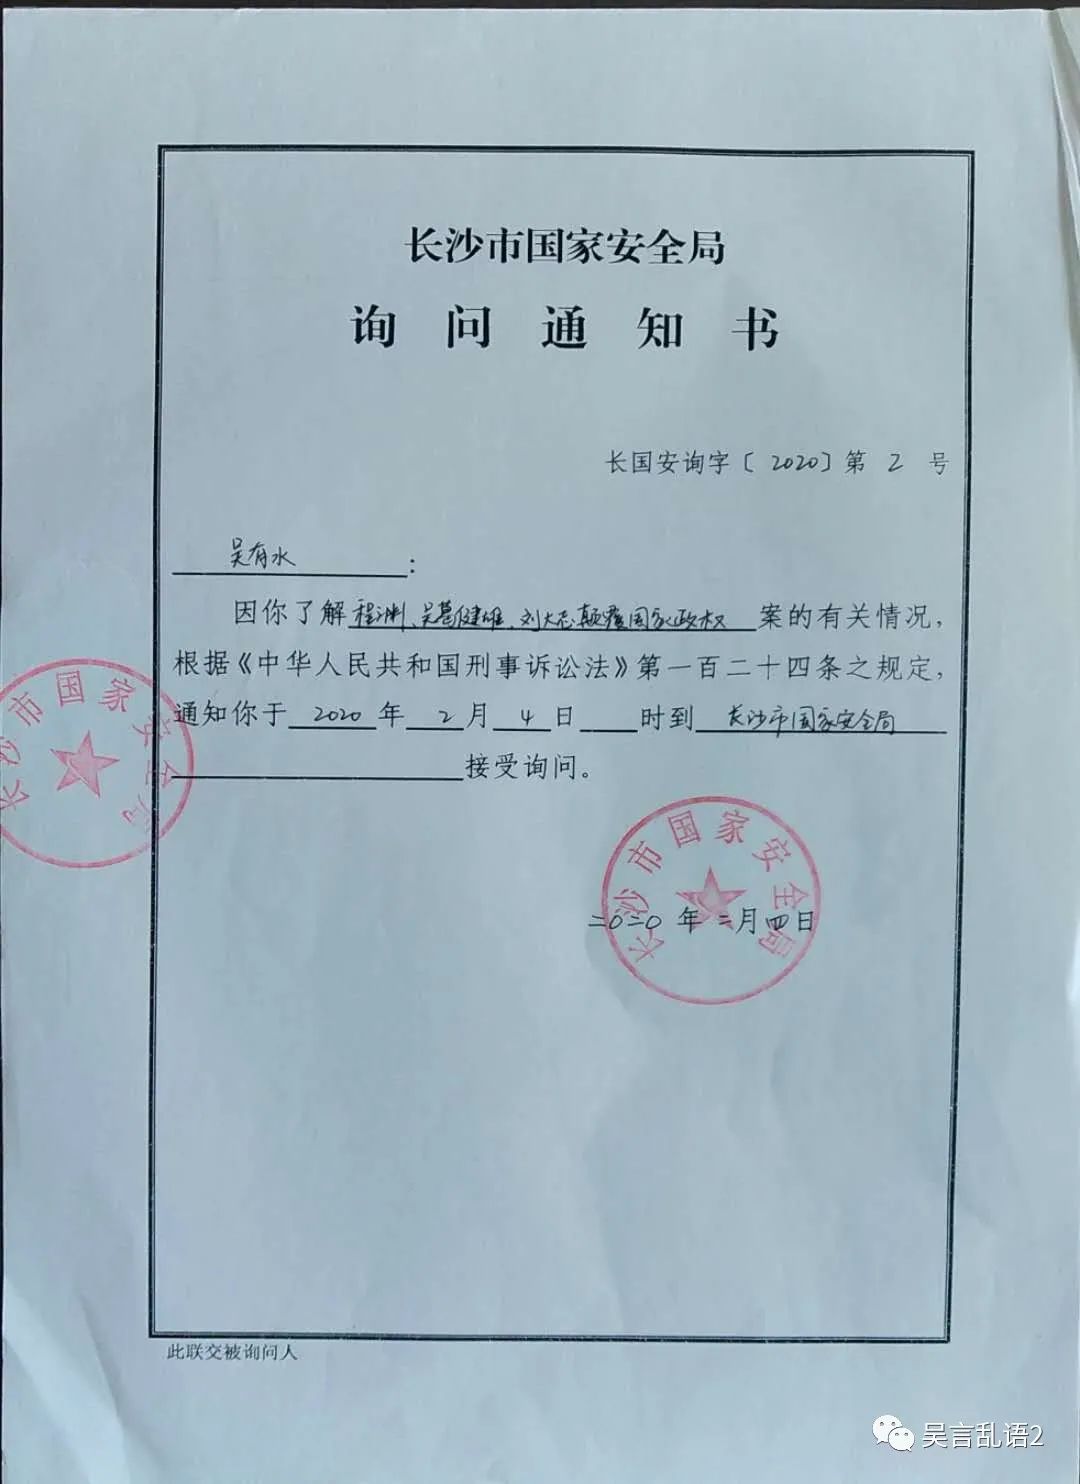 长沙市国家安全局
询问通知书
长国安询字〔2020〕第 2 号
吴有水：
因你了解程渊、吴葛健雄、刘大志颠覆国家政权 案的有关情况，
根据《中华人民共和国刑事诉讼法》第一百二十四条之规定，
通知你于 2020 年 2 月 4 日 时到 长沙市国家安全局
接受询问。
长沙市国家安全局
长沙市国家安全局
二〇二〇年二月四日
此联交被询问人
吴言乱语2